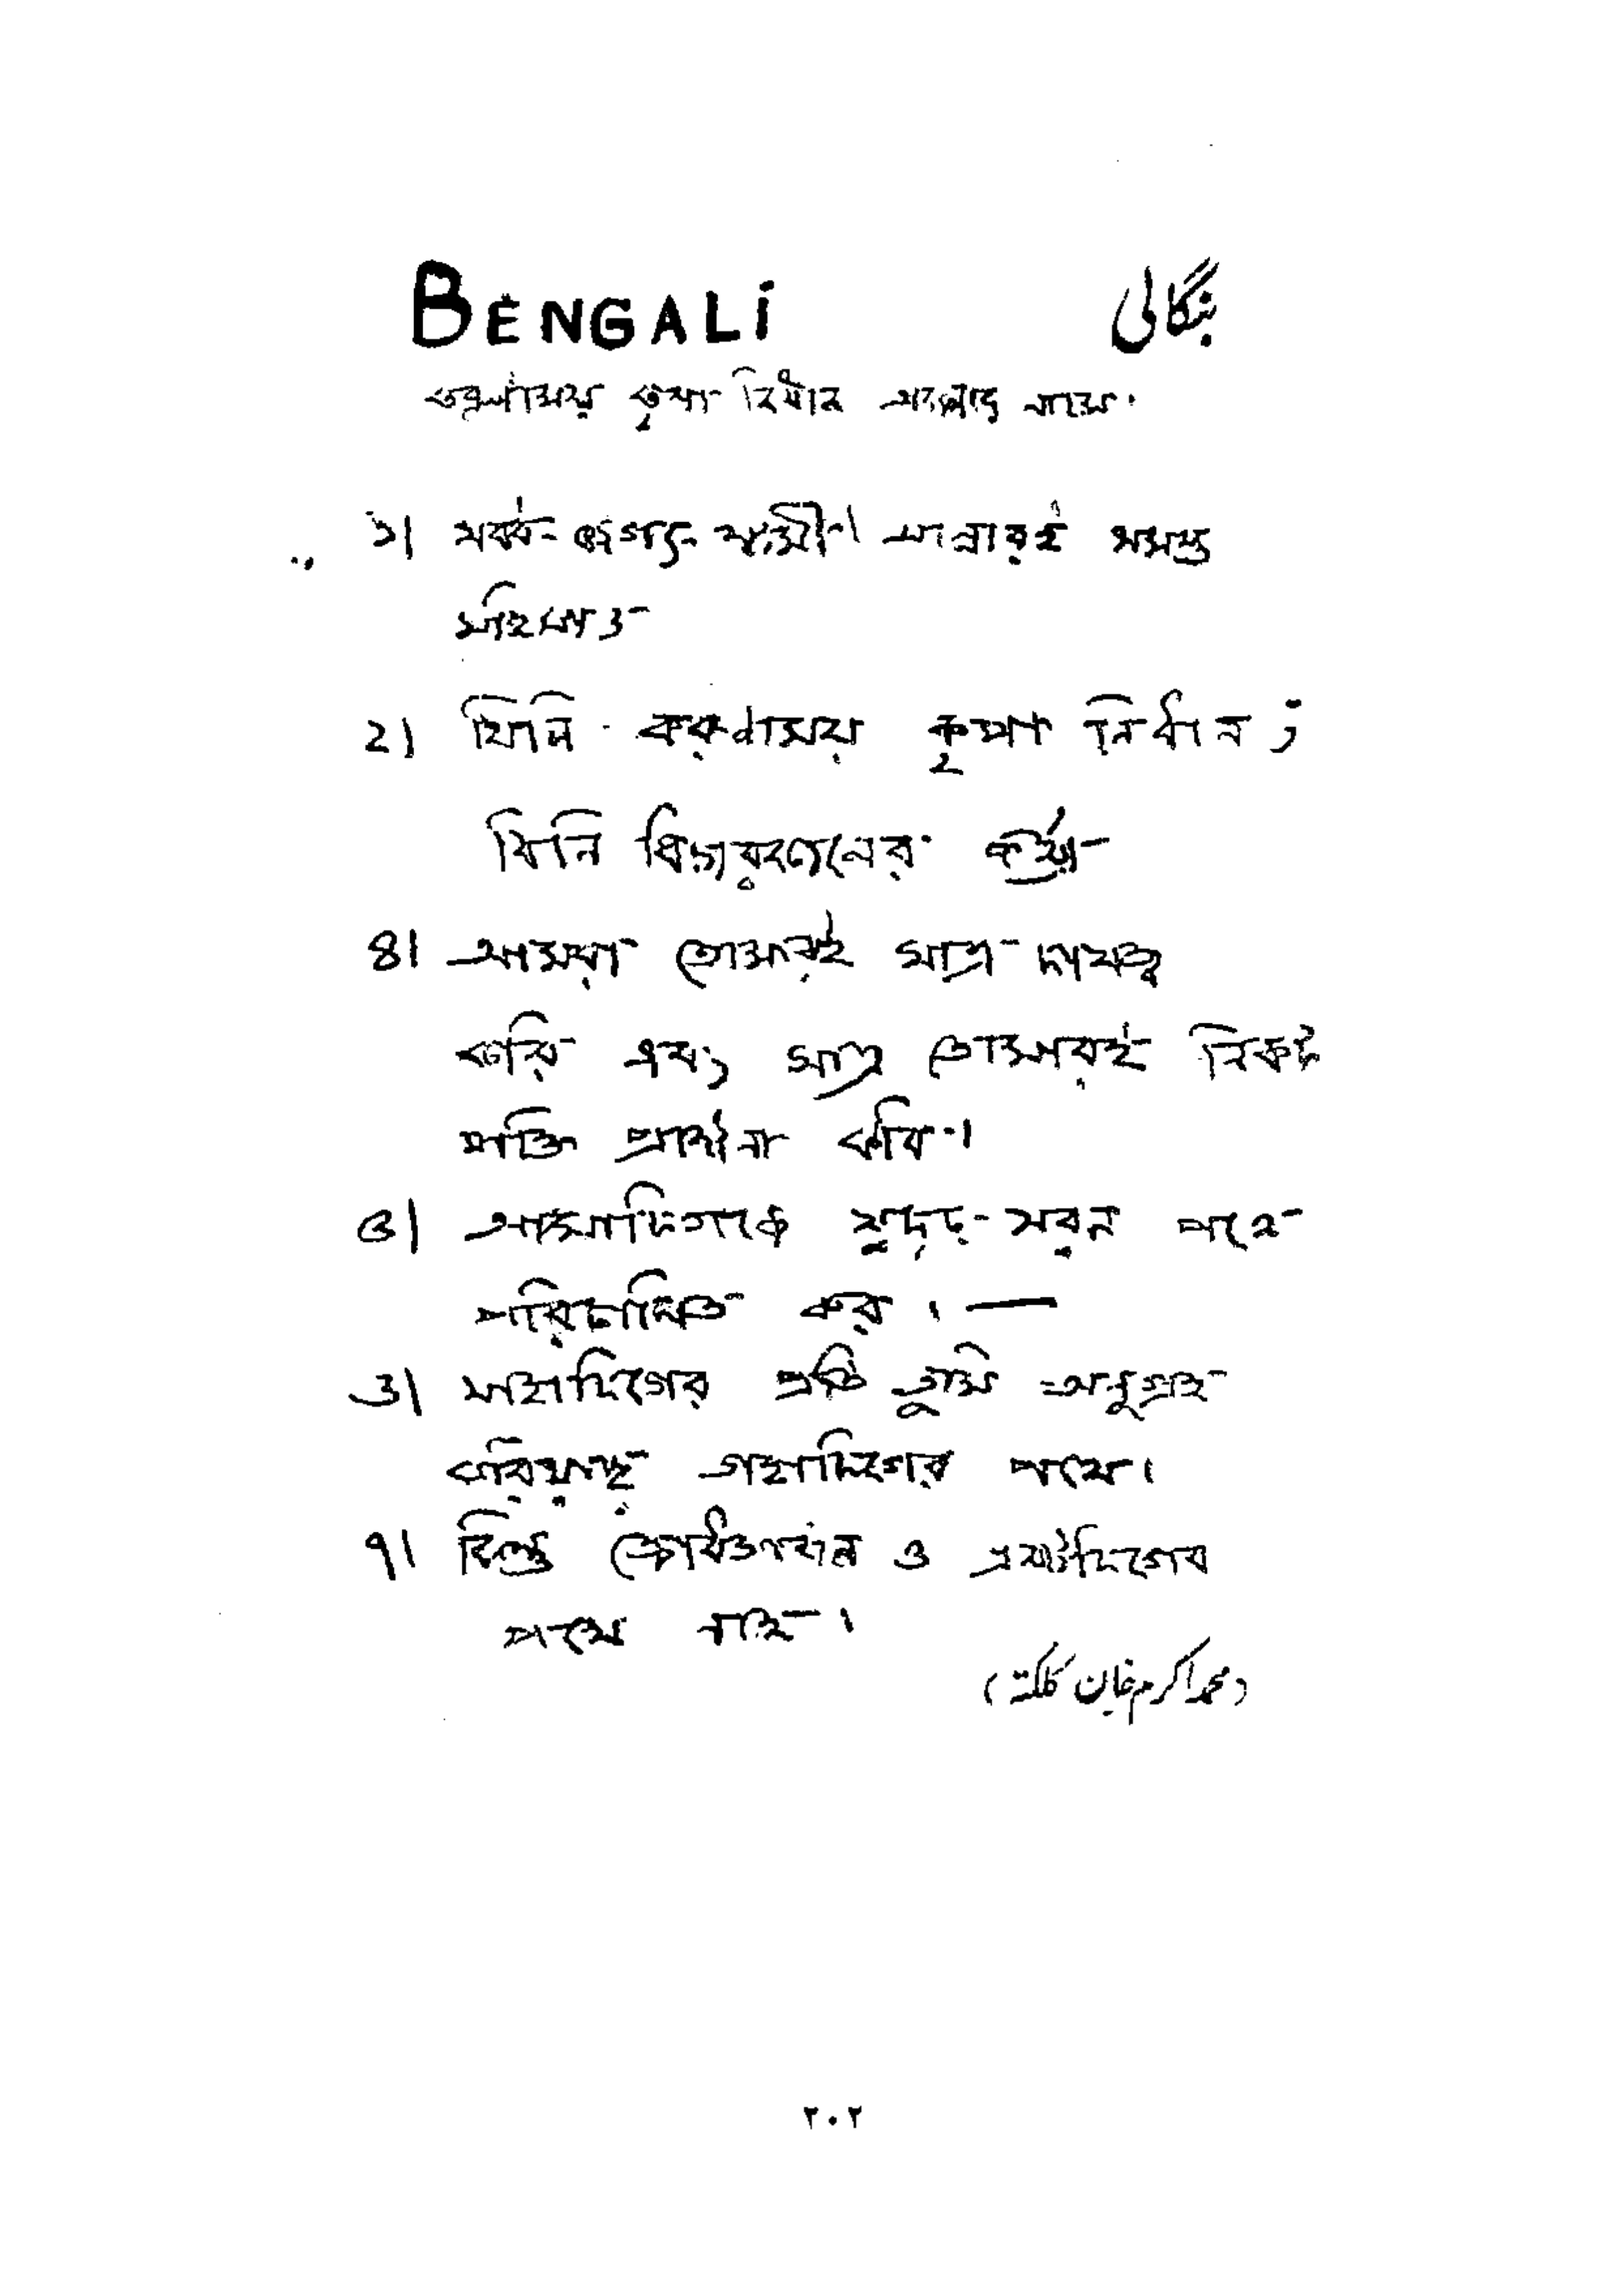 BENGALi بنگالی
করুণাময় কৃপা নিধান আল্লাহ নামে
১। সর্ব্ব জগৎ স্বামী আল্লারই সমস্ত
মহিমা
২। যিনি করুণাময় কৃপা নিধান ;
যিনি বিচার কর্ত্তা
৪। আমরা তোমারই মাত্র দাসত্ব
করি এবং মাত্র তোমারই নিকট
শক্তি প্রার্থনা করি।
৫। আমাদিগকে সুদৃঢ় সরল পথে
পরিচালিত কর । —
৬। যাহাদিগের প্রতি তুমি অনুগ্রহ
করিয়াছ তাহাদিগের পথে।
৭। কিন্তু ও দিগের
পথে নহে।
(محمد اکرم خان کلکتہ)
٢٠٢